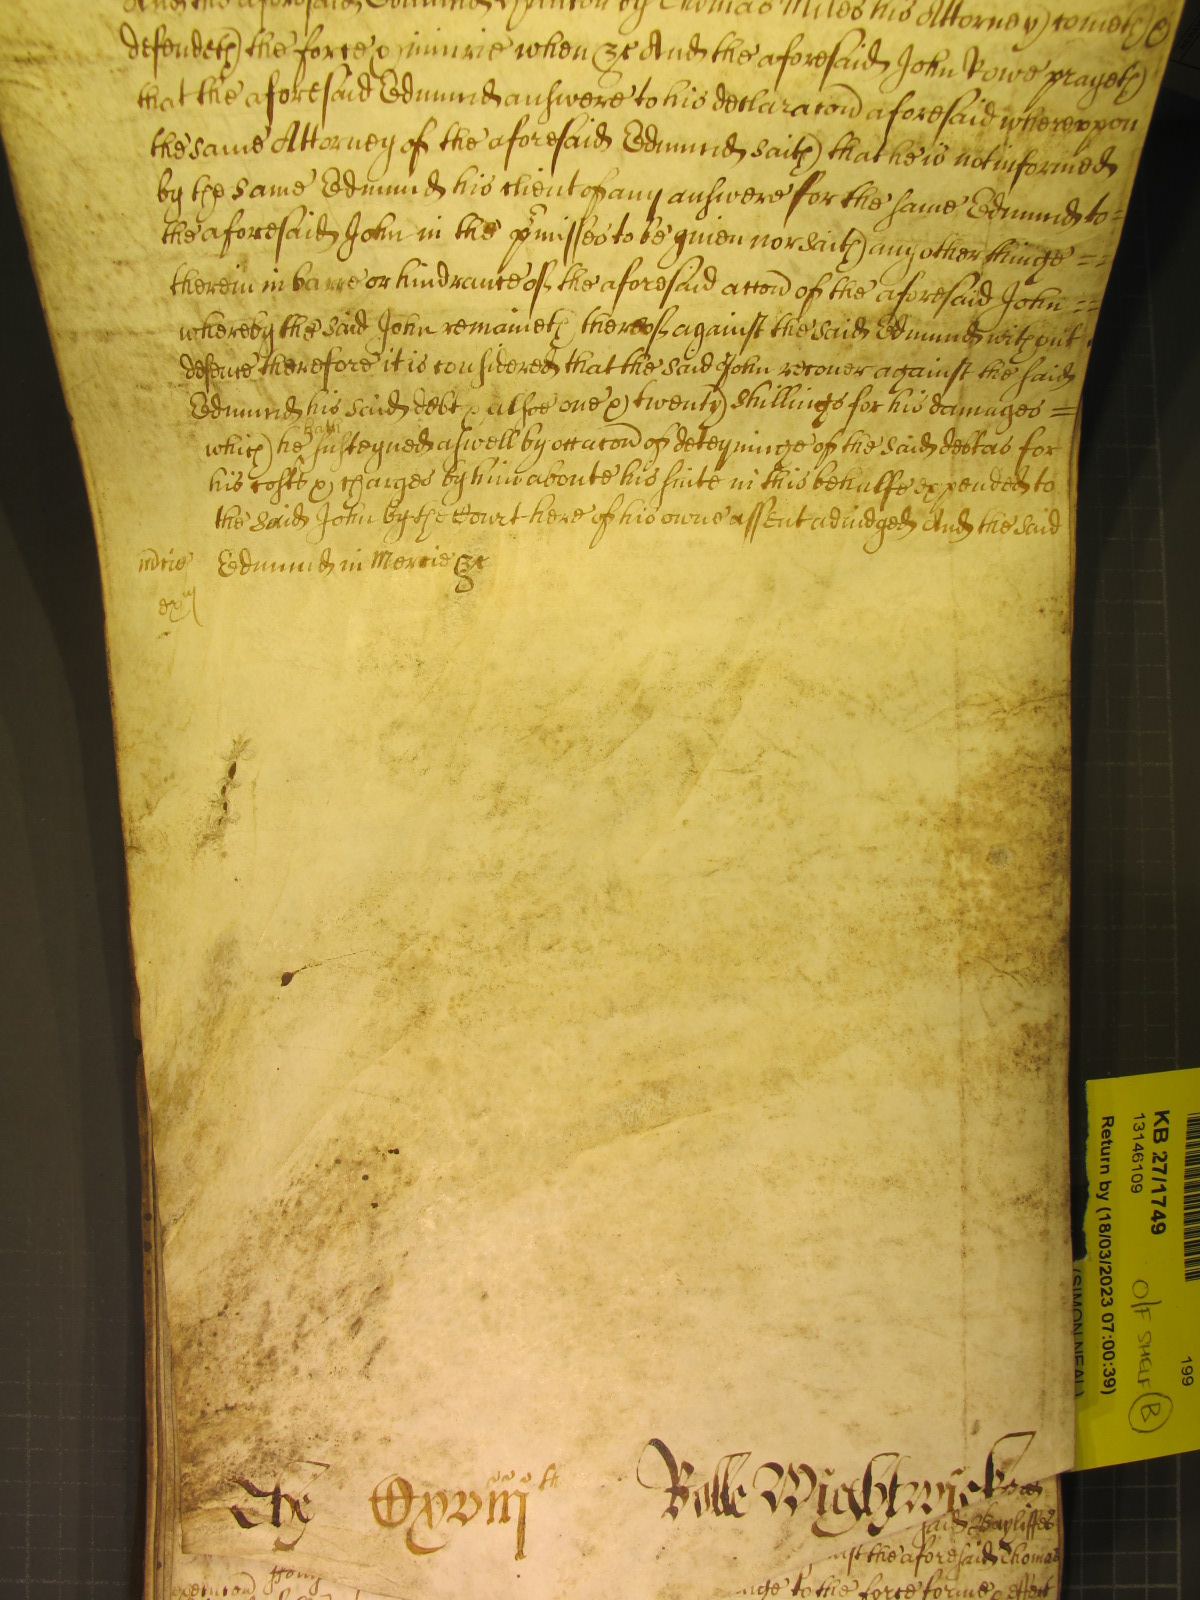 And the aforesaid Edmund by Thomas Miles his Attorney cometh &
defendeth the force & iniurie when &c And the aforesaid John Rowe prayeth
that the aforesaid Edmund answere to his declaracōn aforesaid whereuppon
the same Attorney of the aforesaid Edmund saith that he is not informed
by the same Edmund his client of any answere for the same Edmund to =
the aforesaid John in the p̄misses to be giuen nor saith any other thinge ==
therein in barre or hindrance of the aforesaid accōn of the aforesaid John ==
whereby the said John remaineth thereof against the said Edmund without
defence therefore it is considered that the said John recouer against the said
Edmund his said debt & alsoe one & twenty shillings for his damages =
which he hath susteyned aswell by occacōn of deteyninge of the said debt as for
his costs & charges by him aboute his suite in this behalfe expended to
the said John by the Court here of his owne assent adiudged And the said
mcie Edmund in Mercie &c
The xviijth Rolle Wightwick
said Bayliffes
nst the aforesaid Thomas
nge to the force forme & effect
KB 27/1749
13146109
Return by (18/03/2023 07:00:39)
(SIMON NEAL)
O/F SHELF B
199